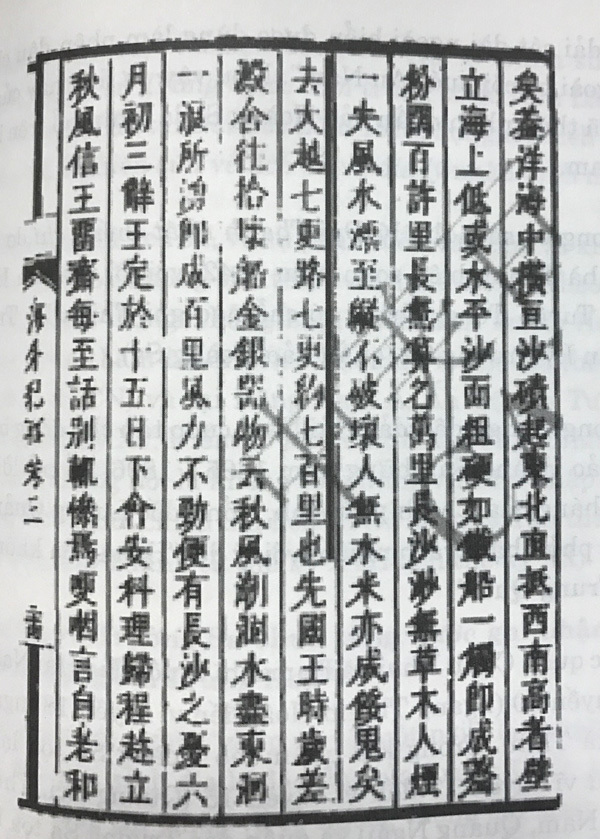 矣蓋洋海中橫亘沙磧起東北直抵西南高者壁
立海上低或水平沙面粗硬如鐵船一觸即成齏
粉闊百許里長無算名萬里長沙渺無草木人煙
一失風水漂至縱不破壞人無水米亦成餒鬼矣
去大越七更路七更約七百里也先國王時歲差
澱舍往拾壞船金銀器物云秋風潮涸水盡東洄
一浪所湧即成百里風力不勁便有長沙之憂六
月初三辭王定於十五日下會安料理歸程趁立
秋風信王留齋每至話別輒慘焉哽咽言自老和
海外紀事卷三